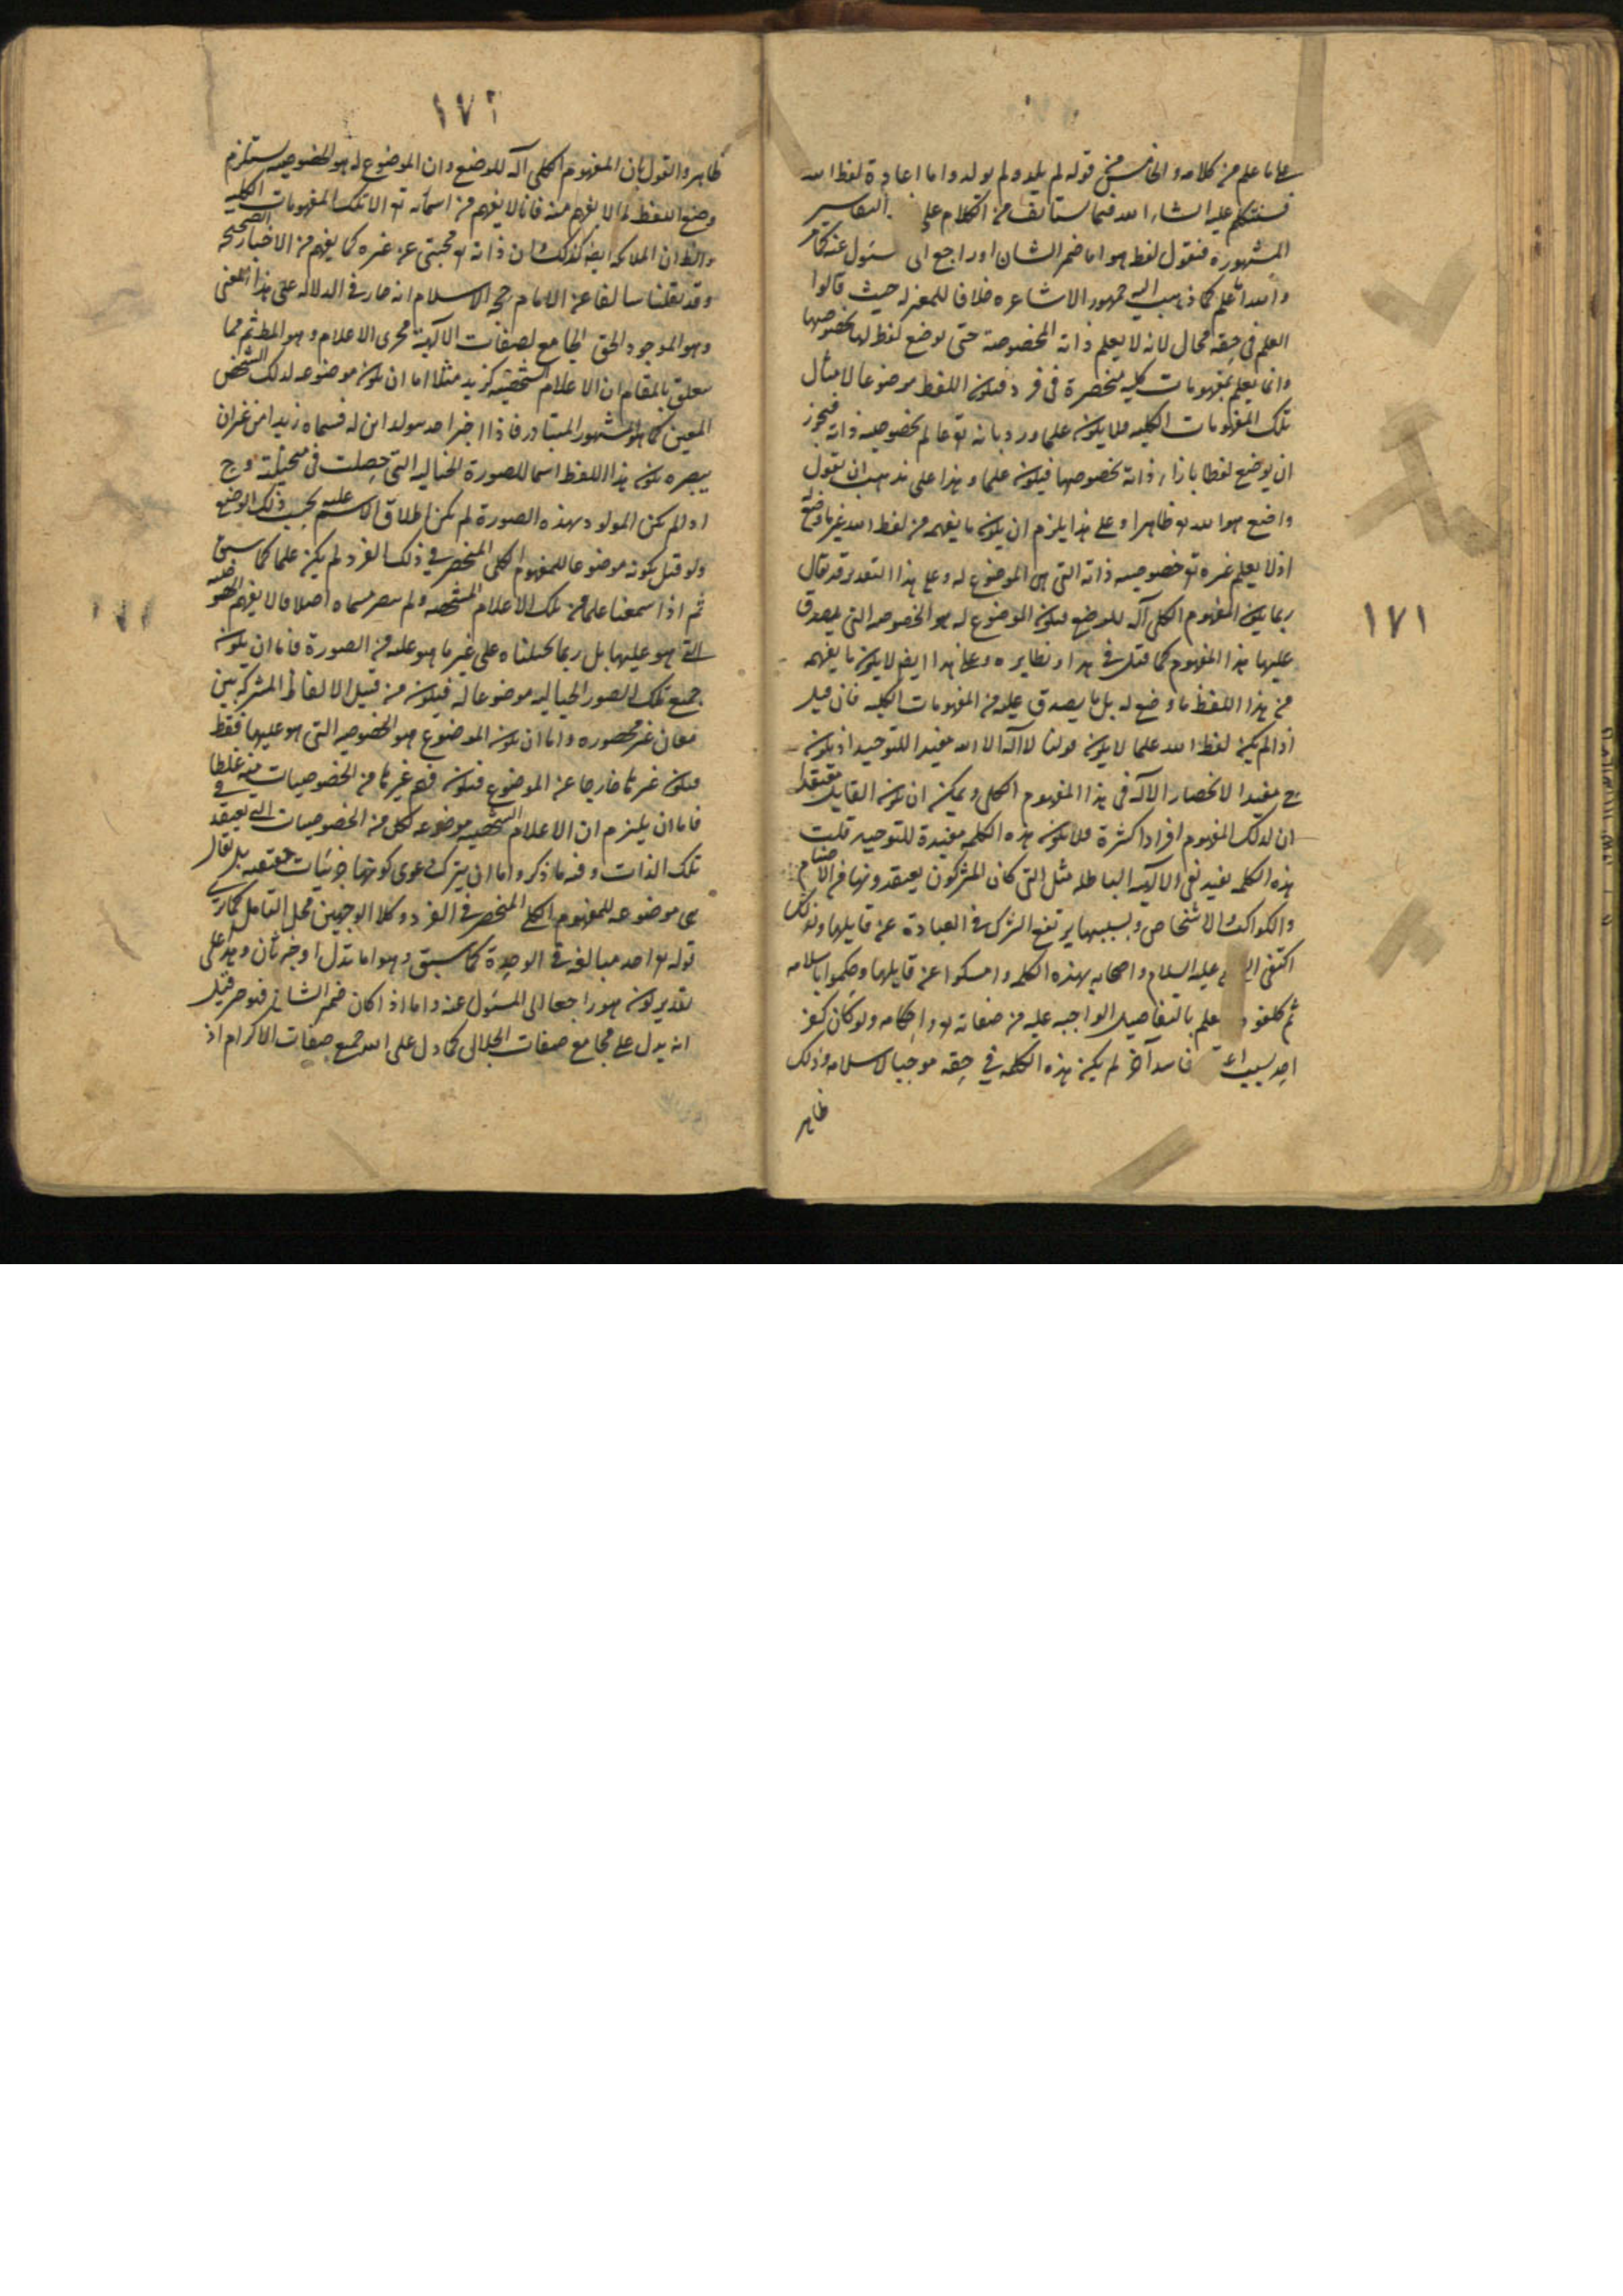 على ما علم من كلامه والخامس من قوله لم يلد ولم يولد واما اعادة لفظ الله
فسنتكلم عليه انشاء الله فيما يستأنف من الكلام على التفاسير
المشهورة فنقول لفظ هو اما ضمير الشان او راجع الى سئول عنه كما مر
والله اعلم كما ذهب اليه جمهور الاشاعره خلافا للمعتزله حيث قالوا
العلم في حقه محال لانه لا يعلم ذاته المخصوصة حتى يوضع لفظ لها بخصوصها
وانما يعلم بمفهومات كليه منحصرة في فرد فيكون اللفظ موضوعا لامثال
تلك المفهومات الكليه فلا يكون علما ورد بانه تع عالم بخصوصيه ذاته فيجوز
ان يوضع لفظا بازاء ذاته بخصوصها فيكون علما وهذا على مذهب ان يقول
واضع هو الله تع ظاهر او على هذا يلزم ان يكون ما يفهم من لفظ الله غير ما وضع
اذ لا يعلم غيره تع خصوصيه ذاته التي هي الموضوع له وعلى هذا التقدير قد يقال
ربما يكون المفهوم الكلي آله للوضع فيكون الموضوع له هو الخصوصيه التي يصدق
عليها هذا المفهوم كما قيل في هذا ونظايره وعلى هذا ايض لا يكون ما يفهم
من هذا اللفظ ما وضع له بل ما يصدق عليه من المفهومات الكليه فان قيل
اذا لم يكن لفظ الله علما لا يكون قولنا لا اله الا الله مفيدا للتوحيد اذ يكون
ح مفيدا لانحصار الآله في هذا المفهوم الكلي ويمكن ان يكون القايل معتقدا
ان لذلك المفهوم افرادا كثيرة فلا يكون هذه الكلمه مفيدة للتوحيد قلت
هذه الكلمه تفيد نفي الالهيه الباطله مثل التي كان المشركون يعتقدونها من الاصنام
والكواكب والاشخاص وبسببها يرتفع الشرك في العبادة عن قايلها ولذلك
اكتفى النبي عليه السلام واصحابه بهذه الكلمه وامسكوا عن قايلها وحكموا باسلامه
ثم كلفوه بالعلم بالتفاصيل الواجبه عليه من صفاته تع واحكامه ولو كان كفر
احد بسبب فاسد آخر لم يكن هذه الكلمه في حقه موجبا لاسلامه وذلك
ظاهر
١٧١
١٧٢
ظاهر والقول بان المفهوم الكلي آله للوضع وان الموضوع له هو الخصوصيه يستلزم
وضع اللفظ لما لا يفهم منه فانا لا نفهم من اسمائه تع الا تلك المفهومات الكليه
والظ ان الملائكه ايض كذلك لان ذاته تع محتجبى عن غيره كما يفهم من الاخبار الصحيحه
وقد نقلنا سالفا عن الامام حجه الاسلام انه صار في الدلاله على هذا المعنى
وهو الموجود الحق الجامع لصفات الالهية مجرى الاعلام وهو المط ثم مما
يتعلق بالمقام ان الاعلام الشخصيه كزيد مثلا اما ان يكون موضوعه لذلك الشخص
المعين كما هو المشهور المتبادر فاذا اخبر احد بمولد ابن له فسماه زيدا من غير ان
يبصره يكون هذا اللفظ اسما للصورة الخياليه التي حصلت في مخيلته وح
اذا لم يكن المولود بهذه الصورة لم يكن اطلاق الاسم عليه بحسب ذلك الوضع
ولو قيل بكونه موضوعا للمفهوم الكلي المنحصر في ذلك الفرد لم يكن علما كما سبق
ثم اذا سمعنا علما من تلك الاعلام المشخصه ولم نبصر مسماه اصلا فانا لا نفهم الخصوصيه
التي هو عليها بل ربما تخيلناه على غير ما هو عليه من الصورة فاما ان يكون
جميع تلك الصور الخياليه موضوعا له فيكون من قبيل الالفاظ المشتركه بين
معان غير محصوره واما ان يكون الموضوع هو الخصوصيه التي هو عليها فقط
فيكون غيرها خارجا عن الموضوع فيكون فهم غيرها من الخصوصيات منه غلطا
فاما ان يلتزم ان الاعلام الشخصيه موضوعه لكل من الخصوصيات التي يعتقد في
تلك الذات وفيه ما ذكر واما ان يترك دعوى كونها جزئيات حقيقيه بل يقال
هي موضوعه للمفهوم الكلي المنحصر في الفرد وكلا الوجهين محل التامل كما ترى
قوله تع احد مبالغه في الوحدة كما سبق وهو اما بدل او خبر ثان وهذا على
تقدير كون هو راجعا الى المسئول عنه واما اذا كان ضمير الشان فهو خبر قيل
انه يدل على مجامع صفات الجلال كما دل على الله جميع صفات الاكرام اذ